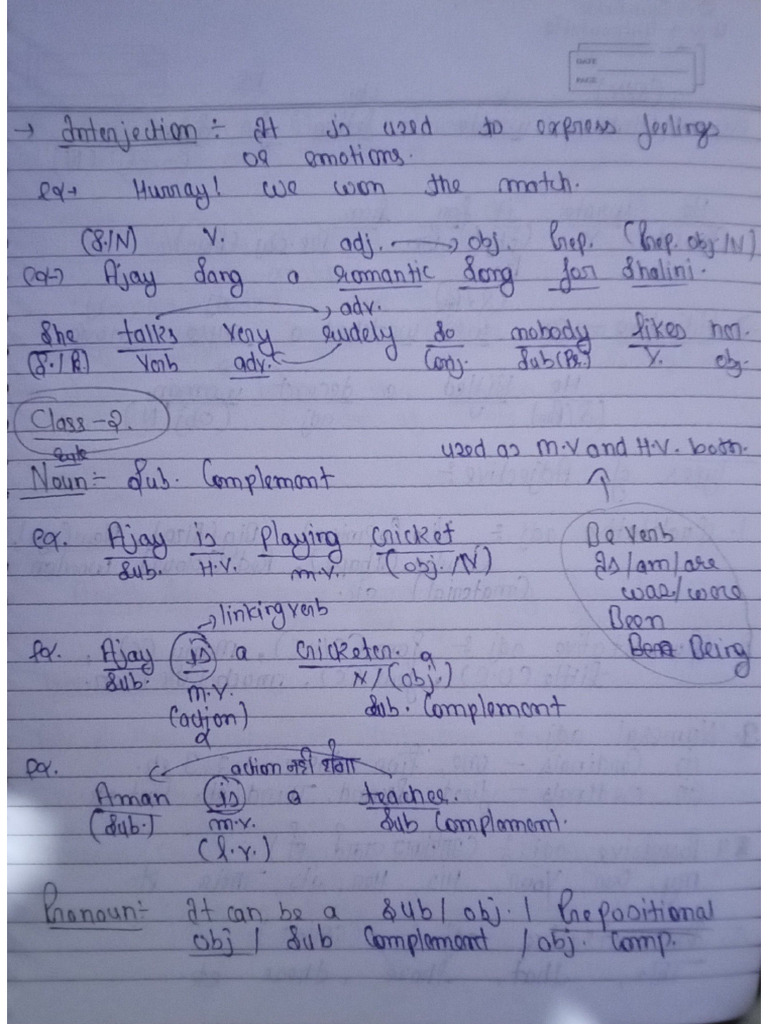 DATE
PAGE
→ Interjection :- It is used to express feelings
or emotions.
ex→ Hurray! We won the match.
(S./N) V. adj. → obj. Prep. (Prep. obj/N)
ex→ Ajay sang a romantic song for Shalini.
→ adv.
She talks very rudely so nobody likes her.
(S./P.) Verb adv. Conj. Sub(Pr.) V. obj.
Class-2.
used as m.v and H.V. both.
Noun:- Sub. Complement
ex. Ajay is playing cricket
Sub. H.V. m.v. (obj./N)
Be verb
Is/am/are
was/were
Been
Being
→ linking verb
ex. Ajay is a cricketer.
Sub. m.v. N/(obj.)
(action) Sub. Complement
ex. action नही होगा
Aman is a teacher.
(Sub.) m.v. Sub Complement.
(l.v.)
Pronoun:- It can be a sub/ obj. / Prepositional
obj / Sub Complement / obj. Comp.